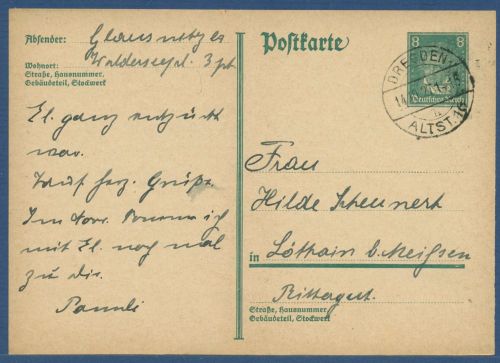 Absender: Glausnitzer
Wohnort: Walderseepl. 3 pt
Straße, Hausnummer,
Gebäudeteil, Stockwerk
El. ganz entzückt
war.
Tausd herz. Grüße.
Im Nov. komme ich
mit El. noch mal
zu dir.
Postkarte
8 8
Deutsches Reich
DRESDEN
ALTST. 16
Frau
Hilde Scheunert
in Lóthain b. Meißen
Rittergut.
Straße, Hausnummer,
Gebäudeteil, Stockwerk